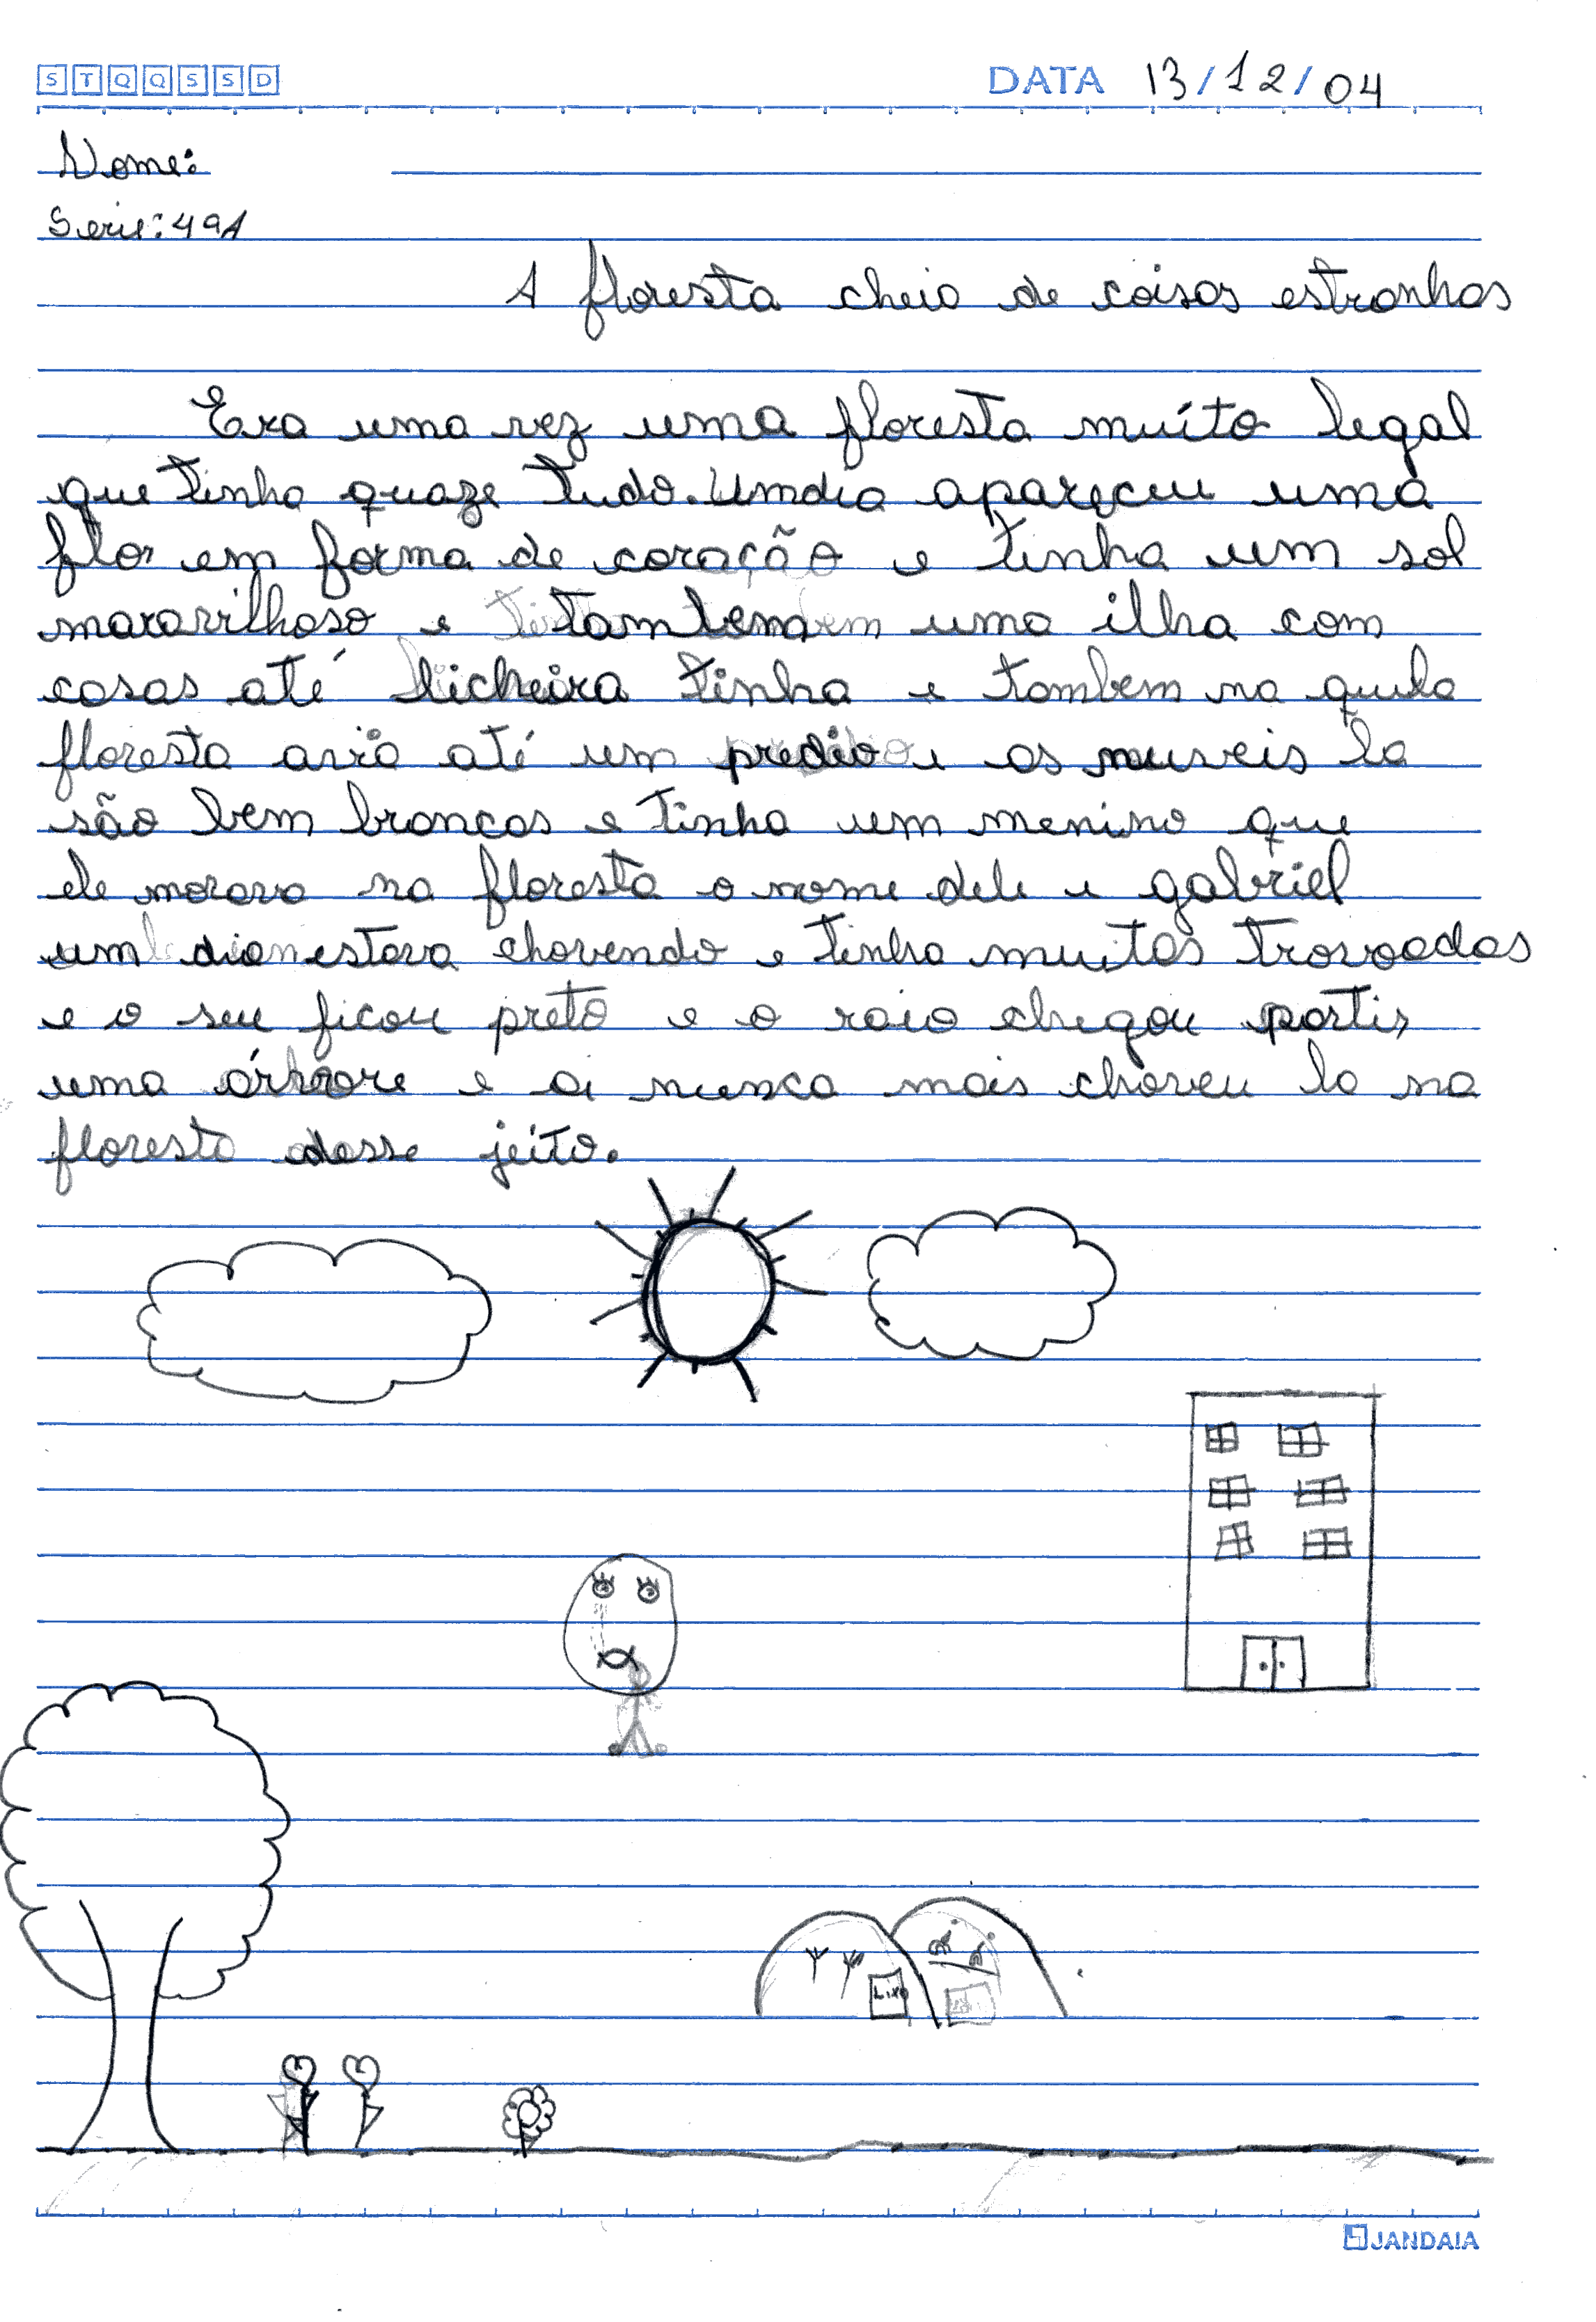 S T Q Q S S D DATA 13/12/04
Nome:
Serie: 4ªA
A floresta cheia de coisas estranhas
Era uma vez uma floresta muito legal
que tinha quaze tudo. Umdia apareceu uma
flor em forma de coração e tinha um sol
maravilhoso e tambem uma ilha com
casas até licheira tinha e tambem na quela
floresta avia até um predio e as nuveis la
são bem brancas e tinha um menino que
ele morava na floresta o nome dele e gabriel
um dia estava chovendo e tinha muitas trovoadas
e o seu ficou preto e o raio chegou partir
uma árvore e ai nunca mais choveu la na
floresta desse jeito.
Lixo
JANDAIA